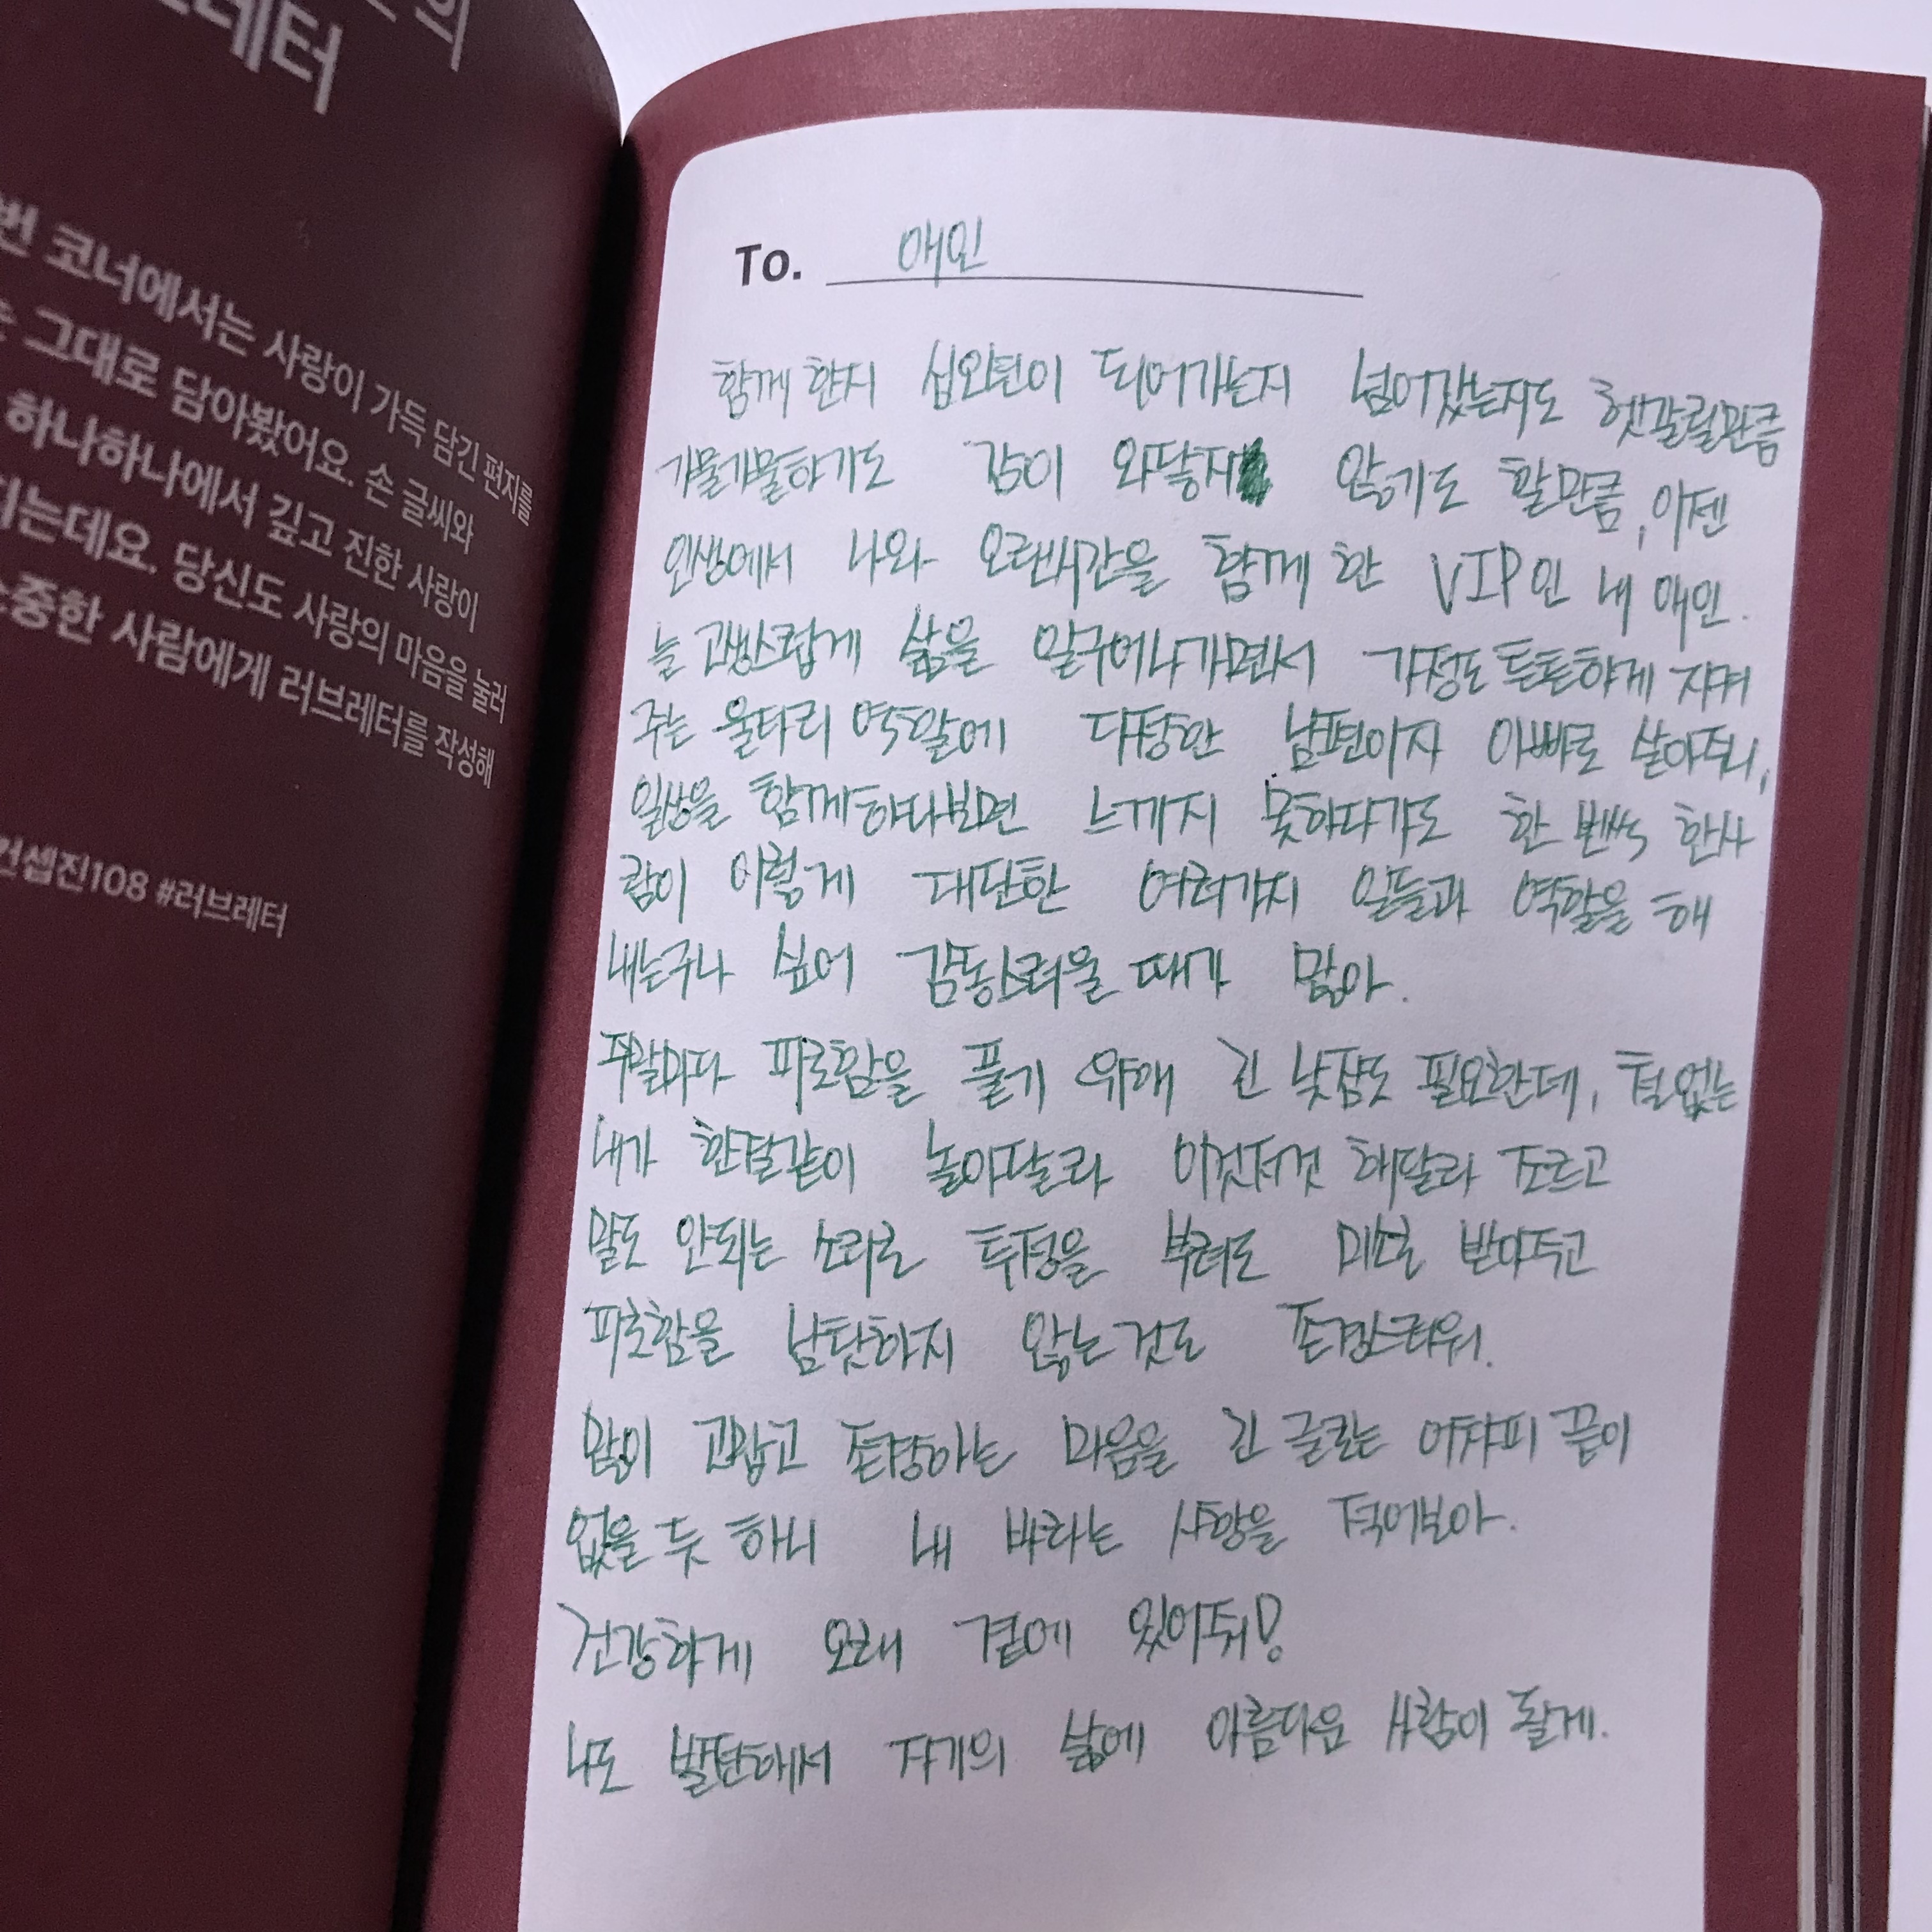 의
레터
번 코너에서는 사랑이 가득 담긴 편지를
그대로 담아봤어요. 손 글씨와
하나하나에서 깊고 진한 사랑이
지는데요. 당신도 사랑의 마음을 눌러
소중한 사람에게 러브레터를 작성해
컨셉진108 #러브레터
To. 애인
함께 한지 십오년이 되어가는지 넘어갔는지도 헷갈릴만큼
가물가물하기도 감이 와닿지 않기도 할만큼, 이젠
인생에서 나와 오랜시간을 함께 한 VIP인 내 애인.
늘 고생스럽게 삶을 일구어나가면서 가정도 튼튼하게 지켜
주는 울타리 역할에 다정한 남편이자 아빠로 살아주니,
일상을 함께하다보면 느끼지 못하다가도 한 번씩 한사
람이 이렇게 대단한 여러가지 일들과 역할을 해
내는구나 싶어 감동스러울 때가 많아.
주말마다 피로함을 풀기 위해 긴 낮잠도 필요한데, 철없는
내가 한결같이 놀아달라 이것저것 해달라 조르고
말도 안되는 소리로 투정을 부려도 미소로 받아주고
피로함을 남탓하지 않는것도 존경스러워.
많이 고맙고 존경하는 마음을 긴 글로는 어차피 끝이
없을 듯 하니 내 바라는 사항을 적어보아.
건강하게 오래 곁에 있어줘!
나도 발전해서 자기의 삶에 아름다운 사람이 될게.